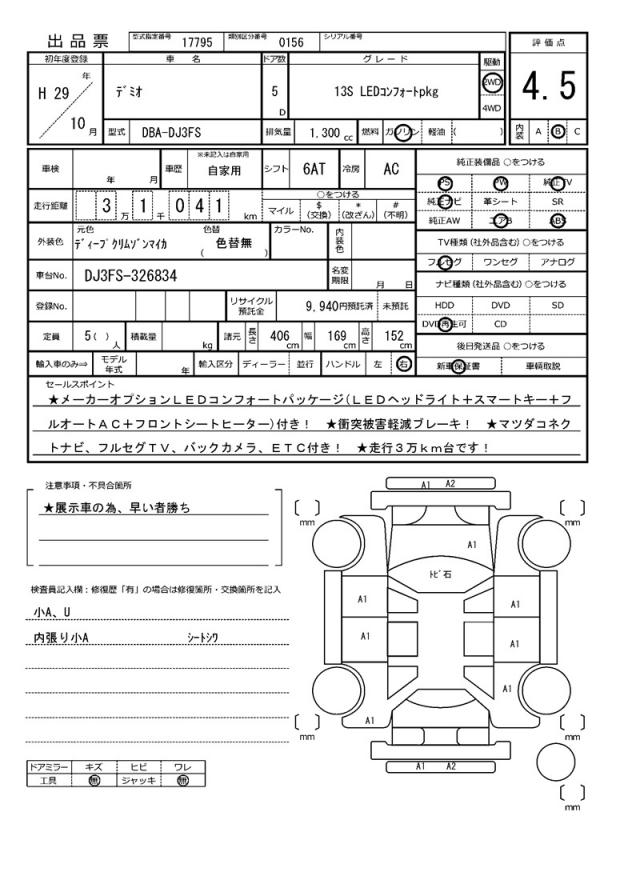 出品票 型式指定番号 17795 類別区分番号 0156 シリアル番号
評価点
4.5
内装 A B C
初年度登録 車名 ドア数 グレード 駆動
H 29 年 10 月
デミオ 5 D 13S LEDコンフォートpkg 2WD 4WD
型式 DBA-DJ3FS 排気量 1,300 cc 燃料 ガソリン 軽油 ( )
車検 年 月 車歴 ※未記入は自家用 自家用 シフト 6AT 冷房 AC
走行距離 3 万 1 千 0 4 1 km
○をつける
マイル $ (交換) * (改ざん) # (不明)
外装色 元色 ディープクリムゾンマイカ 色替 ( 色替無 ) カラーNo. 内装色
車台No. DJ3FS-326834 名変期限 月 日
登録No. リサイクル預託金 9,940円預託済 未預託
定員 5( ) 人 積載量 kg 諸元 長さ 406 cm 幅 169 cm 高さ 152 cm
輸入車のみ⇒ モデル年式 年 輸入区分 ディーラー 並行 ハンドル 左 右
純正装備品 ○をつける
PS PW 純正TV
純正ナビ 革シート SR
純正AW エアB ABS
TV種類(社外品含む)○をつける
フルセグ ワンセグ アナログ
ナビ種類(社外品含む)○をつける
HDD DVD SD
DVD再生可 CD
後日発送品 ○をつける
新車保証書 車輌取説
セールスポイント
★メーカーオプションLEDコンフォートパッケージ(LEDヘッドライト+スマートキー+フ
ルオートAC+フロントシートヒーター)付き! ★衝突被害軽減ブレーキ! ★マツダコネク
トナビ、フルセグTV、バックカメラ、ETC付き! ★走行3万km台です!
注意事項・不具合箇所
★展示車の為、早い者勝ち
検査員記入欄:修復歴「有」の場合は修復箇所・交換箇所を記入
小A、U
内張り小A シートシワ
ドアミラー キズ ヒビ ワレ
工具 無 ジャッキ 無
A1 A2
[ ] mm [ ] mm
A1
トビ石
A1 A1
A1 A1
A1
A1
[ ] mm [ ] mm
A1 A2
[ ] mm